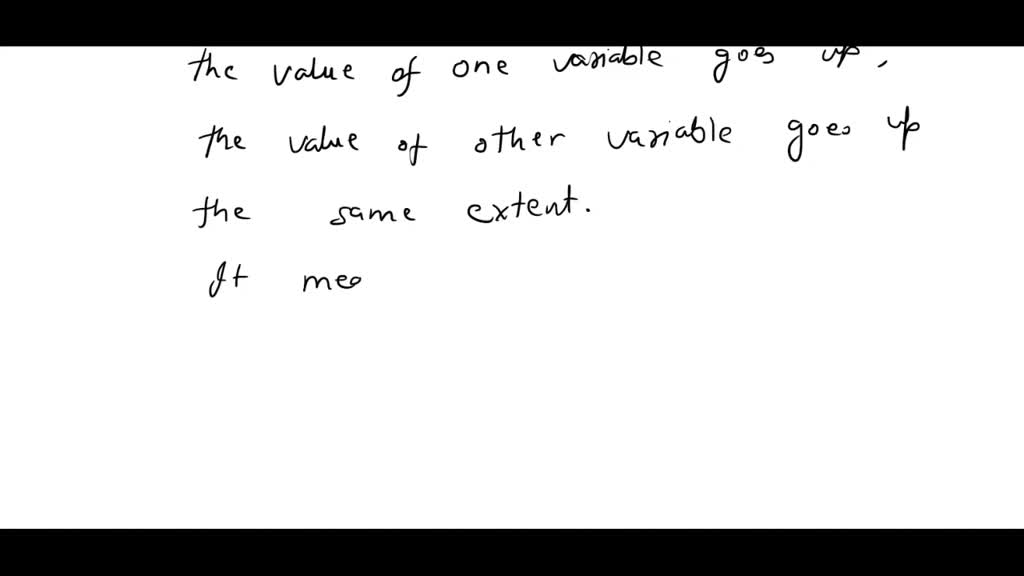 the value of one variable goes up,
the value of other variable goes up
the same extent.
It mea